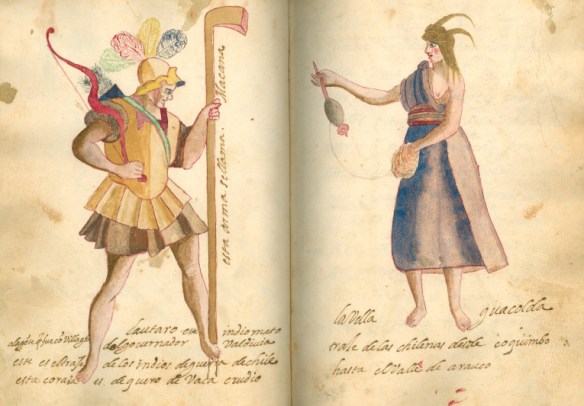 esta arma se llama. Macana.
lautaro era indio moso
del governador Valdivia
este es el traje de los indios de guerra de chile
esta coraza es de quero de vaca crudio
la Vella guacolda
traje de las chilenas desde coquimbo
hasta el Valle de arauco